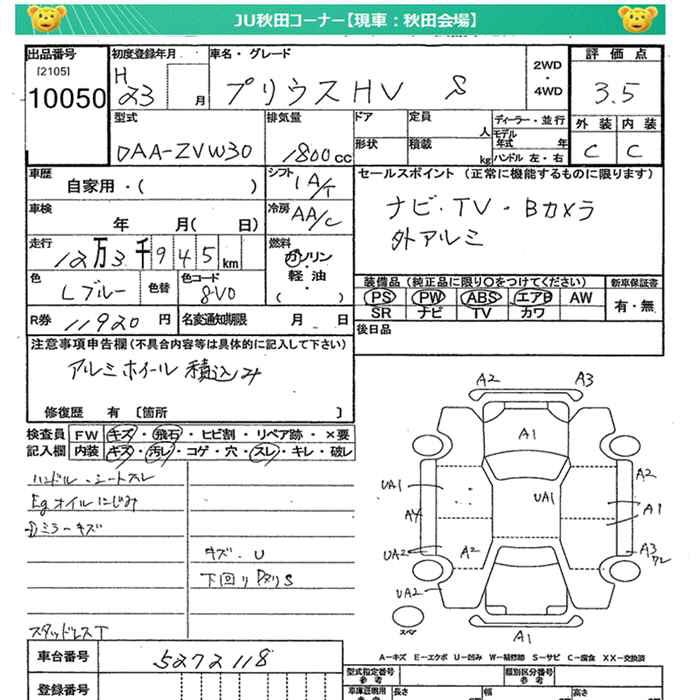 JU秋田コーナー【現車：秋田会場】
出品番号 初度登録年月 車名・グレード 2WD ・ 4WD 評価点
[2105] H 23 月 プリウスHV S 3.5
10050
型式 排気量 ドア 定員 人 ディーラー・並行 外装 内装
DAA-ZVW30 1800cc 形状 積載 kg モデル年式 年 ハンドル 左・右 C C
車歴 自家用・( ) シフト IA/T セールスポイント (正常に機能するものに限ります)
車検 年 月( 日) 冷房 AA/C ナビ・TV・Bカメラ
外アルミ
走行 12万3千945km 燃料 ガソリン・軽油・( )
色 Lブルー 色替 色コード 8V0
装備品 (純正品に限り○をつけてください) 新車保証書
PS PW ABS エアB AW 有・無
SR ナビ TV カワ
R券 11920円 名変通知期限 月 日
後日品
注意事項申告欄 (不具合内容等は具体的に記入して下さい)
アルミホイール 積込み
修復歴 有 〔箇所 〕
検査員 FW キズ・飛石・ヒビ割・リペア跡・×要
記入欄 内装 キズ・汚レ・コゲ・穴・スレ・キレ・破レ
ハンドル、シートスレ
Egオイルにじみ
ミラーキズ
キズ・U
下回り S
スタッドレスT
A2 A3
A1
UA1 UA1 A2
A4 A1
UA2 A2 A3
UA2
スペア A1
A-キズ E-エクボ U-凹み W-補修跡 S-サビ C-腐食 XX-交換済
車台番号 5272118
登録番号
型式指定番号 参考 類別区分番号 参考
車庫証明用 参考 長さ 幅 高さ